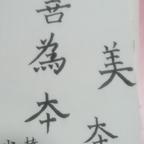 善為本
美本